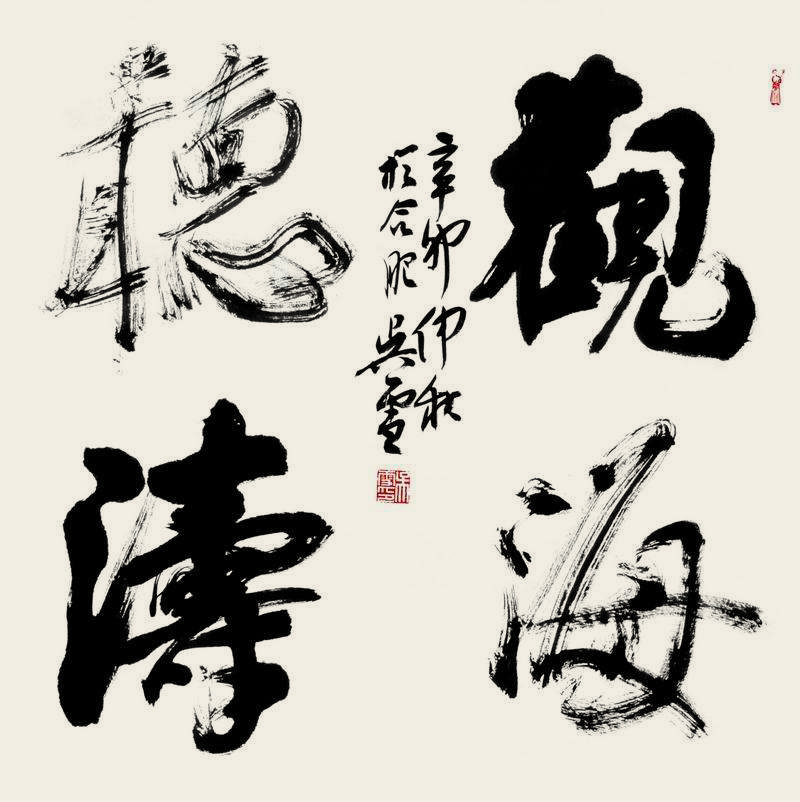 觀海
聽濤
辛卯仲秋
於合肥吳雪